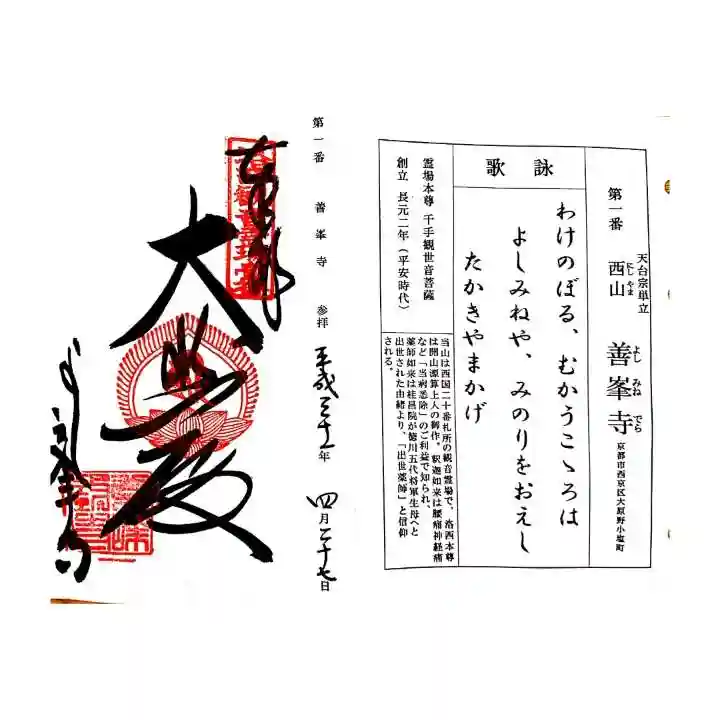 天台宗単立
第一番 西山 善峯寺
にしやま
よしみねでら
京都市西京区大原野小塩町
詠歌
わけのぼる、むかうこゝろは
よしみねや、みのりをおえし
たかきやまかげ
霊場本尊 千手観世音菩薩
創立 長元二年(平安時代)
当山は西国二十番札所の観音霊場で、洛西本尊
は開山源算上人の御作。釈迦如来は腰痛神経痛
など「当病悉除」のご利益で知られ、
薬師如来は桂昌院が徳川五代将軍生母へと
出世された由緒より、「出世薬師」と信仰
される。
第一番 善峯寺 参拝 平成三十一年 四月二十七日
大悲殿